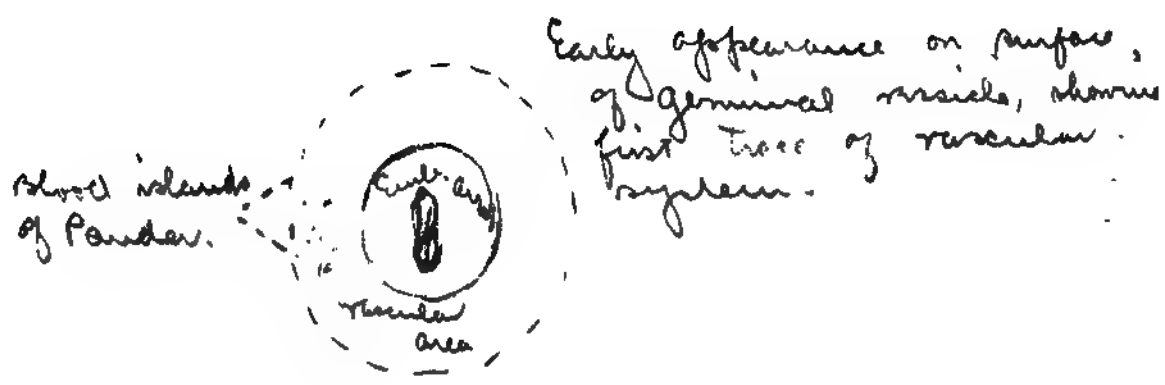 Early appearance on surface,
of germinal vesicle, showing
first trace of vascular
system.
Blood islands
of Pander.
Emb. area
vascular
area